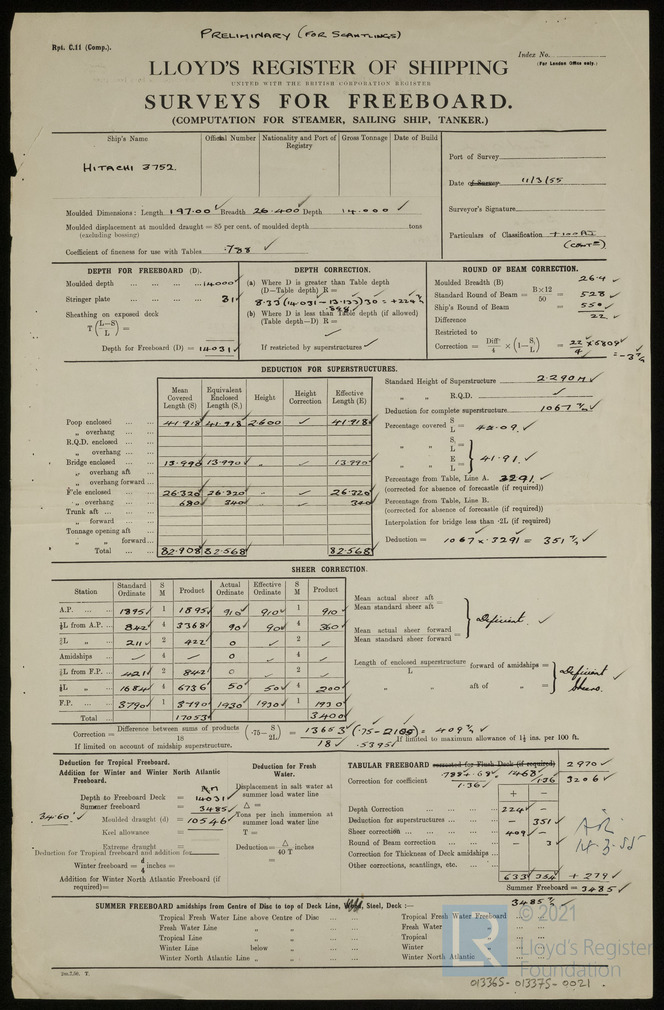 PRELIMINARY (FOR SCANTLINGS)
Rpt. C.11 (Comp.).
Index No.
(For London Office only.)
LLOYD'S REGISTER OF SHIPPING
UNITED WITH THE BRITISH CORPORATION REGISTER
SURVEYS FOR FREEBOARD.
(COMPUTATION FOR STEAMER, SAILING SHIP, TANKER.)
Ship's Name Official Number Nationality and Port of Registry Gross Tonnage Date of Build
HITACHI 3752.
Port of Survey
Date of Survey 11/3/55
Surveyor's Signature
Particulars of Classification +100A1
Moulded Dimensions: Length 197.00 Breadth 26.400 Depth 14.000
Moulded displacement at moulded draught = 85 per cent. of moulded depth tons
(excluding bossing)
Coefficient of fineness for use with Tables .788
DEPTH FOR FREEBOARD (D).
Moulded depth 14000
Stringer plate 31
Sheathing on exposed deck
T (L-S)/L =
Depth for Freeboard (D) = 14031
DEPTH CORRECTION.
(a) Where D is greater than Table depth
(D-Table depth) R =
8.33 (14031-13133) 30 = +224
(b) Where D is less than Table depth (if allowed)
(Table depth-D) R =
If restricted by superstructures
ROUND OF BEAM CORRECTION.
Moulded Breadth (B) 26.4
Standard Round of Beam = B×12/50 = 528
Ship's Round of Beam = 550
Difference 22
Restricted to
Correction = Diff/4 × (1 - S₁/L) = 22/4 × .5809 = -3
DEDUCTION FOR SUPERSTRUCTURES.
Mean Covered Length (S) Equivalent Enclosed Length (S₁) Height Height Correction Effective Length (E)
Poop enclosed 41.918 41.918 2.600 41.918
" overhang
R.Q.D. enclosed
" overhang
Bridge enclosed 13.990 13.990 " 13.990
" overhang aft
" overhang forward
F'cle enclosed 26.320 26.320 " 26.320
" overhang 680 340 340
Trunk aft
" forward
Tonnage opening aft
" " forward
Total 82.908 82.568 82.568
Standard Height of Superstructure 2.290 M
" " R.Q.D.
Deduction for complete superstructure 1067
Percentage covered S/L = 42.09
" " S₁/L =
" " E/L = 41.91.
Percentage from Table, Line A. 3291
(corrected for absence of forecastle (if required))
Percentage from Table, Line B.
(corrected for absence of forecastle (if required))
Interpolation for bridge less than ·2L (if required)
Deduction = 1067 × .3291 = 351
SHEER CORRECTION.
Station Standard Ordinate S M Product Actual Ordinate Effective Ordinate S M Product
A.P. 1895 1 1895 910 910 1 910
⅙L from A.P. 842 4 3368 90 90 4 360
⅓L " 211 2 422 0 2
Amidships 4 0 4
⅓L from F.P. 421 2 842 0 2
⅙L " 1684 4 6736 50 50 4 200
F.P. 3790 1 3790 1930 1930 1 1930
Total 17053 3400
Mean actual sheer aft
Mean standard sheer aft =
Mean actual sheer forward
Mean standard sheer forward =
Deficient.
Length of enclosed superstructure/L forward of amidships =
" " aft of " =
Deficient Sheer.
Correction = Difference between sums of products/18 (·75 - S/2L) = 13653/18 (.75-.2105) = 409
.5395
If limited to maximum allowance of 1½ ins. per 100 ft.
If limited on account of midship superstructure.
Deduction for Tropical Freeboard.
Addition for Winter and Winter North Atlantic Freeboard.
Depth to Freeboard Deck = 14031
Summer freeboard = 3485
Moulded draught (d) = 10546
34.60
Keel allowance =
Extreme draught =
Deduction for Tropical freeboard and addition for
Winter freeboard = d/4 inches =
Addition for Winter North Atlantic Freeboard (if required) =
Deduction for Fresh Water.
Displacement in salt water at summer load water line
Δ =
Tons per inch immersion at summer load water line
T =
Deduction = Δ/40 T inches
=
TABULAR FREEBOARD corrected for Flush Deck (if required) 2970
Correction for coefficient .788+.68/1.36 1.468/1.36 3206
+ -
Depth Correction 224 -
Deduction for superstructures - 351
Sheer correction 409 -
Round of Beam correction - 3
Correction for Thickness of Deck amidships
Other corrections, scantlings, etc.
633 354 + 279
Summer Freeboard = 3485
14.3.55
SUMMER FREEBOARD amidships from Centre of Disc to top of Deck Line, Wood, Steel, Deck :— 3485
Tropical Fresh Water Line above Centre of Disc
Fresh Water Line " "
Tropical Line " "
Winter Line below "
Winter North Atlantic Line " "
Tropical Fresh Water Freeboard
Fresh Water "
Tropical "
Winter "
Winter North Atlantic "
© 2021
Lloyd's Register
Foundation
LR
013365-013375-0021